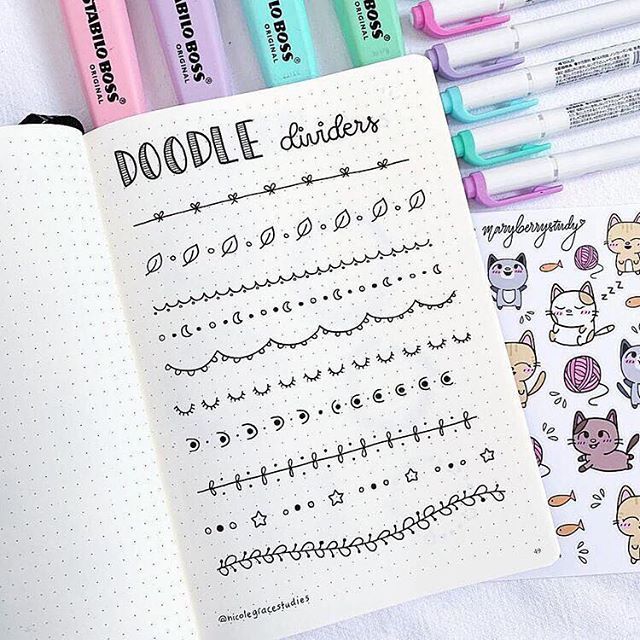 STABILO BOSS
ORIGINAL
STABILO BOSS
ORIGINAL
STABILO BOSS
ORIGINAL
STABILO BOSS
ORIGINAL
DOODLE dividers
maryberrystudy
zzz
49
@nicolegracestudies